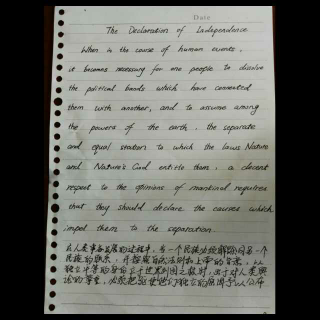 Date
The Declaration of Independence
When in the course of human events,
it becomes necessary for one people to dissolve
the political bonds which have connected
them with another, and to assume among
the powers of the earth, the separate
and equal station to which the laws Nature
and Nature's God entitle them, a decent
respect to the opinions of mankind requires
that they should declare the causes which
impel them to the separation.
在人类事务发展的过程中，当一个民族必须解除同另一个
民族的联系，并按照自然法则和上帝的旨意，以
独立平等的身份立于世界列国之林时，出于对人类舆
论的尊重，必须把驱使他们独立的原因予以公布